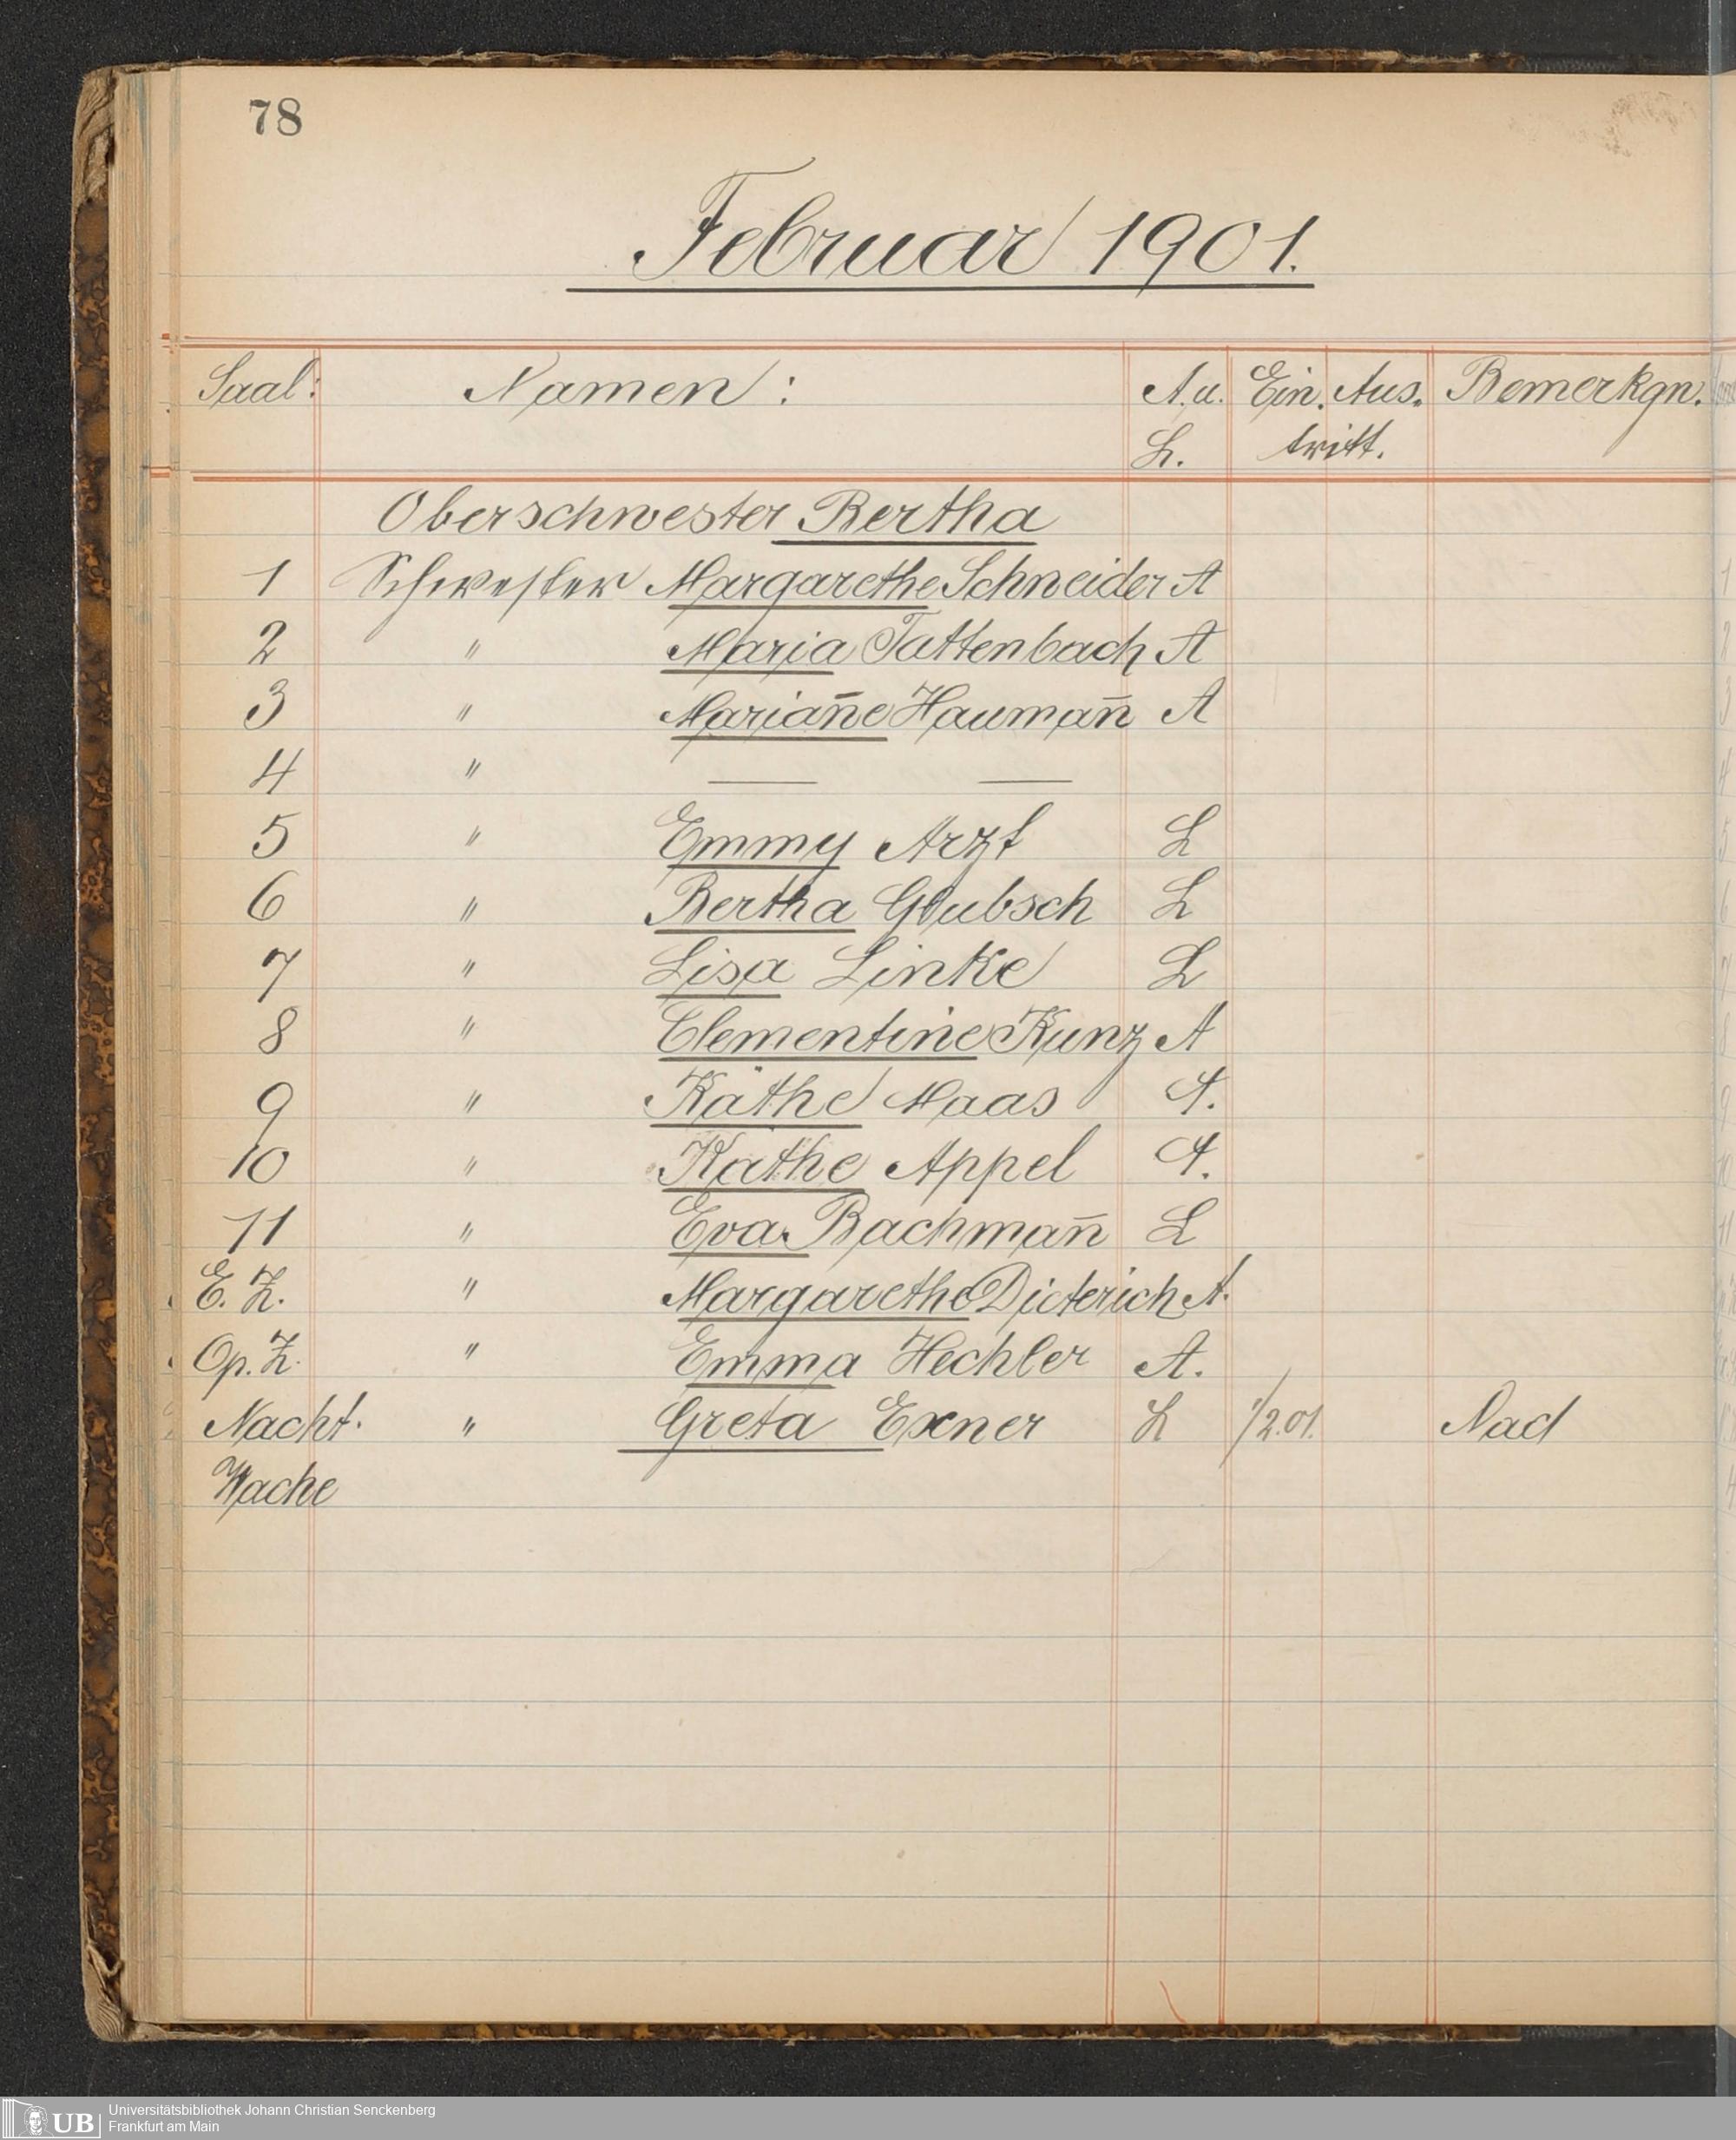 78
Februar 1901.
Saal: Namen: A.u. Ein. Aus. Bemerkgn.
L. tritt.
Oberschwester Bertha
1 Schwester Margarethe Schneider A
2 " Maria Tattenbach A
3 " Marian̄e Hauman̄ A
4 " — —
5 " Emmy Arzt L
6 " Bertha Glubsch L
7 " Lisa Linke L
8 " Clementine Kunz A
9 " Käthe Maas A.
10 " Käthe Appel A.
11 " Eva Bachman̄ L
E. Z. " Margarethe Dieterich A.
Op. Z. " Emma Hechler A.
Nacht. " Greta Exner L 1/2.01.
Wache
UB Universitätsbibliothek Johann Christian Senckenberg
Frankfurt am Main